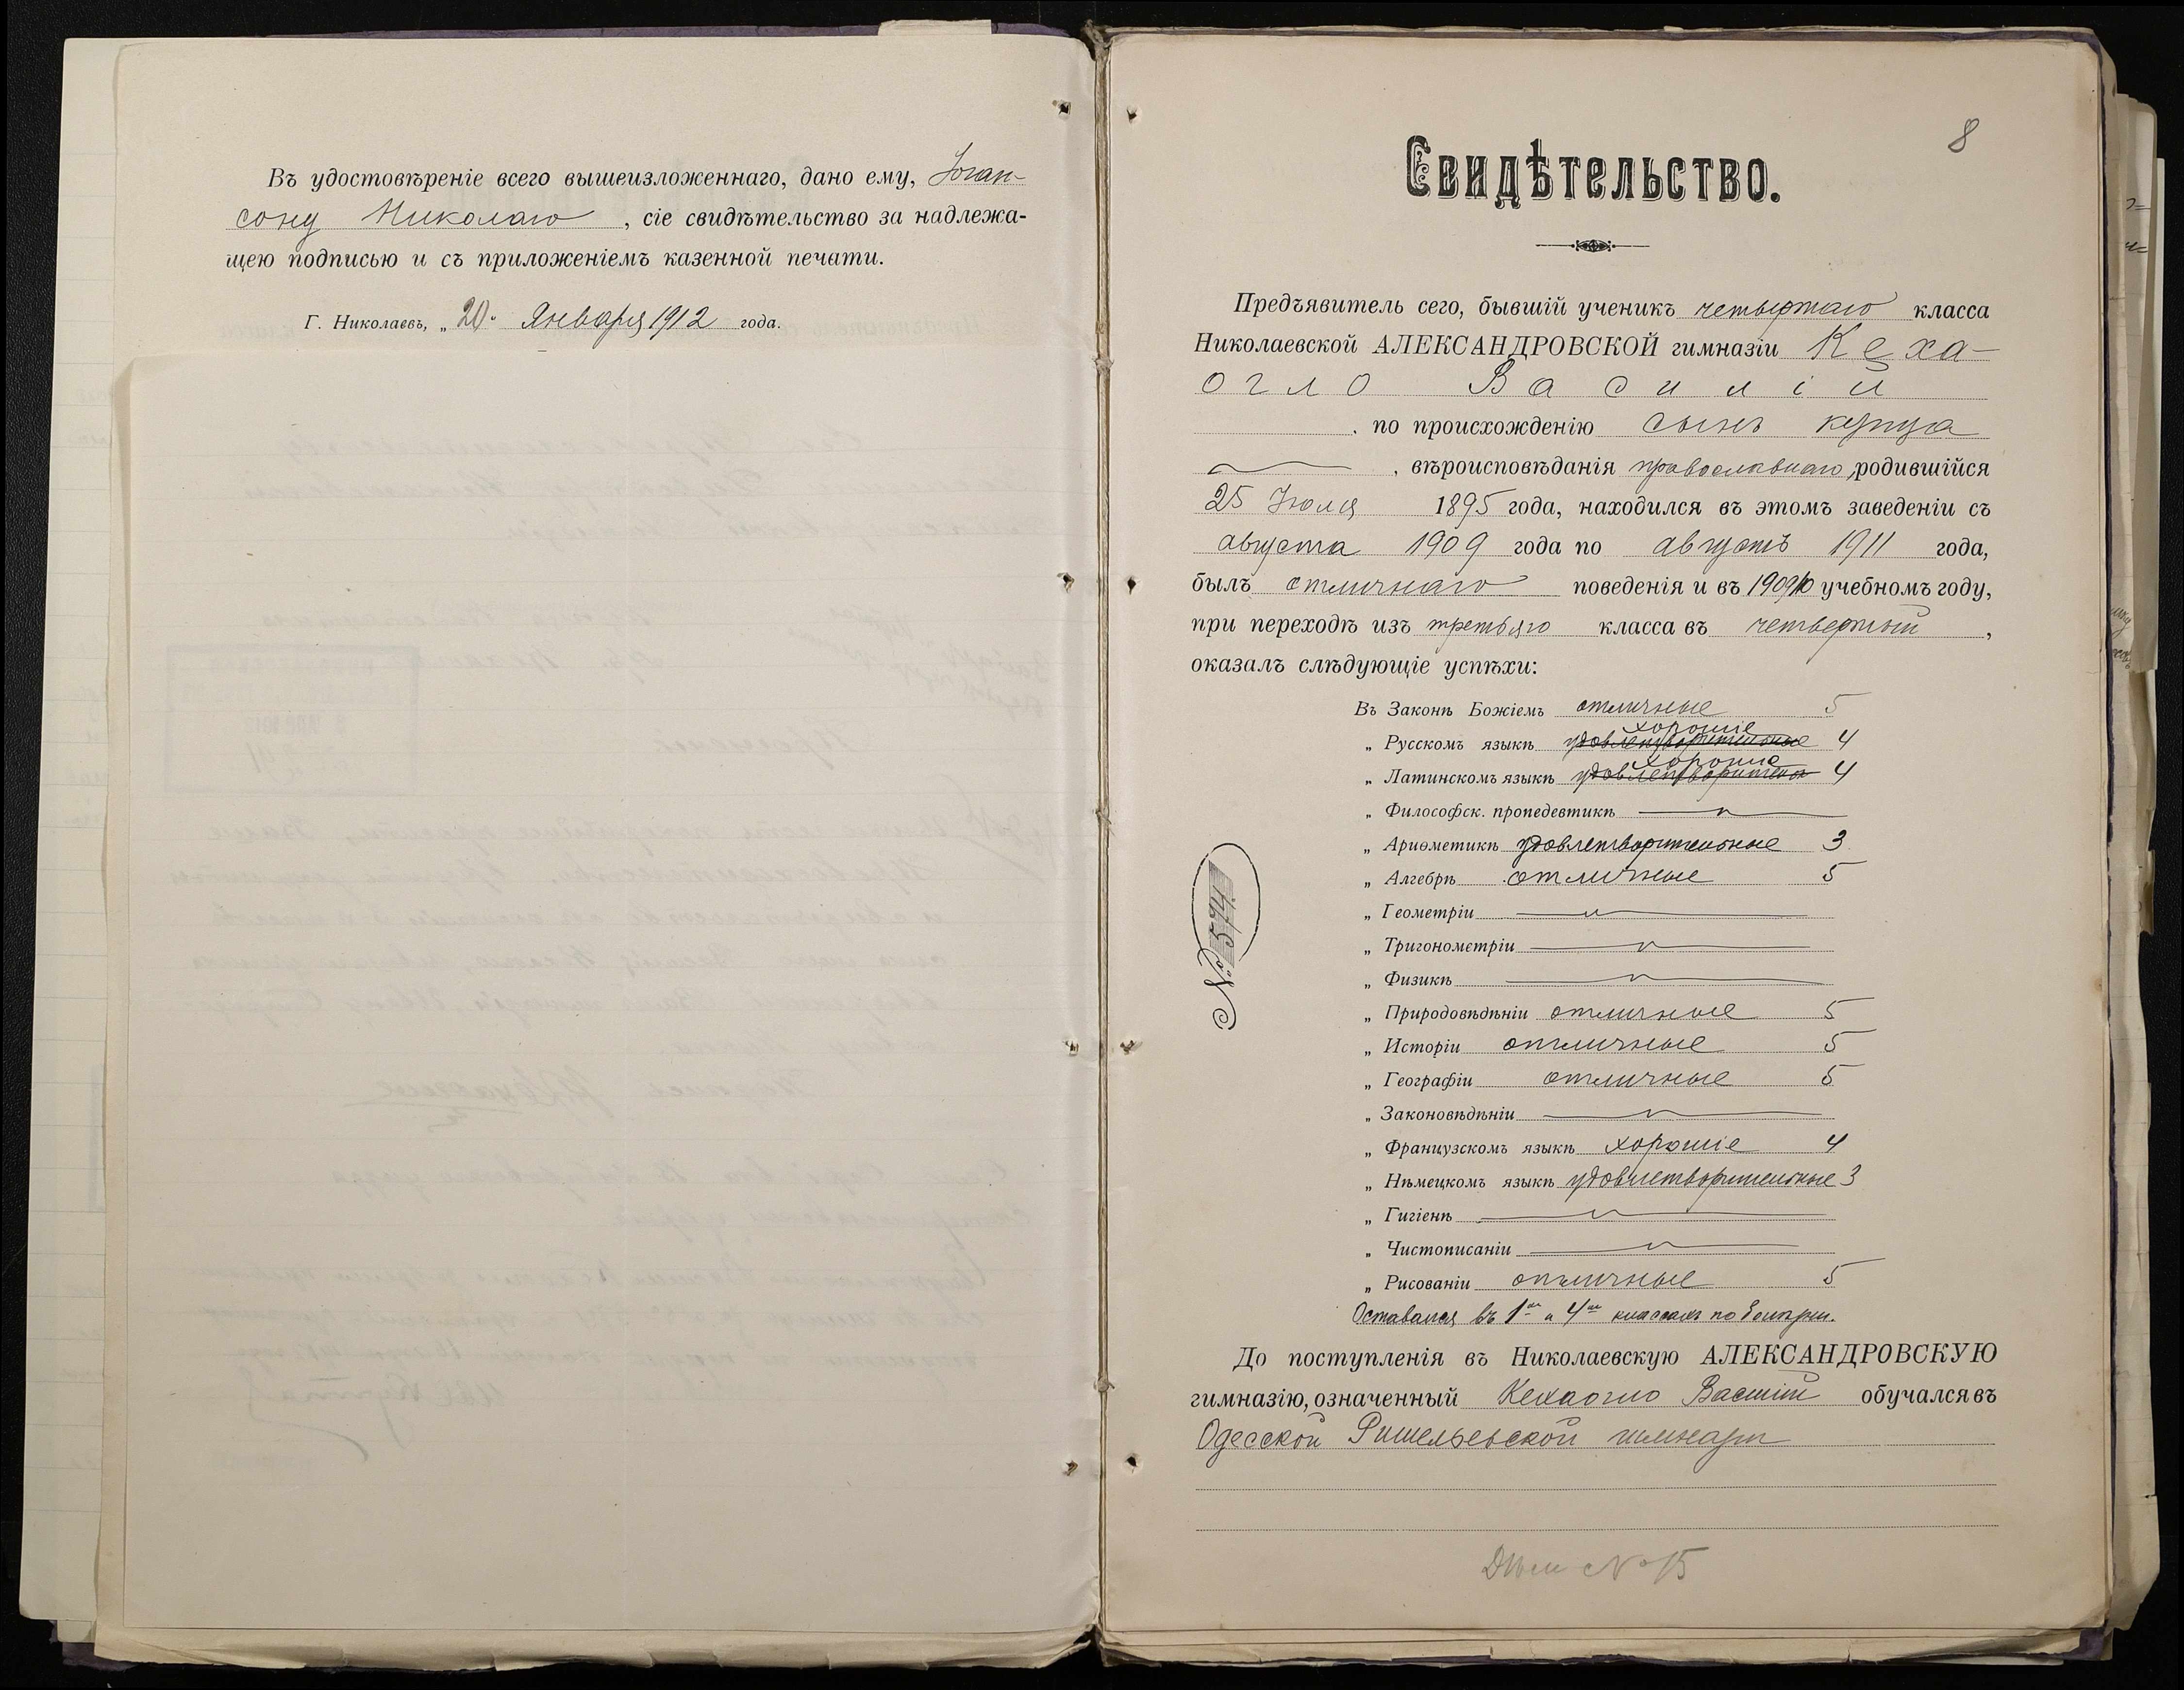 Въ удостовѣреніе всего вышеизложеннаго, дано ему, Іоган-
сону Николаю, сіе свидѣтельство за надлежа-
щею подписью и съ приложеніемъ казенной печати.
Г. Николаевъ, „20“ Января 1912 года.
8
Свидѣтельство.
Предъявитель сего, бывшій ученикъ четвертаго класса
Николаевской АЛЕКСАНДРОВСКОЙ гимназіи Кеха-
огло Василій
, по происхожденію сынъ купца
, вѣроисповѣданія православнаго, родившійся
25 Іюля 1895 года, находился въ этомъ заведеніи съ
августа 1909 года по августъ 1911 года,
былъ отличнаго поведенія и въ 1909/10 учебномъ году,
при переходѣ изъ третьяго класса въ четвертый,
оказалъ слѣдующіе успѣхи:
Въ Законѣ Божіемъ отличные 5
хорошіе
„ Русскомъ языкѣ удовлетворительные 4
хорошіе
„ Латинскомъ языкѣ удовлетворительн 4
„ Философск. пропедевтикѣ
„ Ариѳметикѣ удовлетворительные 3
„ Алгебрѣ отличные 5
„ Геометріи
„ Тригонометріи
„ Физикѣ
„ Природовѣдѣніи отличные 5
„ Исторіи отличные 5
„ Географіи отличные 5
„ Законовѣдѣніи
„ Французскомъ языкѣ хорошіе 4
„ Нѣмецкомъ языкѣ удовлетворительные 3
„ Гигіенѣ
„ Чистописаніи
„ Рисованіи отличные 5
Оставался въ 1мъ и 4мъ классахъ по
До поступленія въ Николаевскую АЛЕКСАНДРОВСКУЮ
гимназію, означенный Кехаогло Василій обучался въ
Одесской Ришельевской гимназіи
№ 574
№ 15